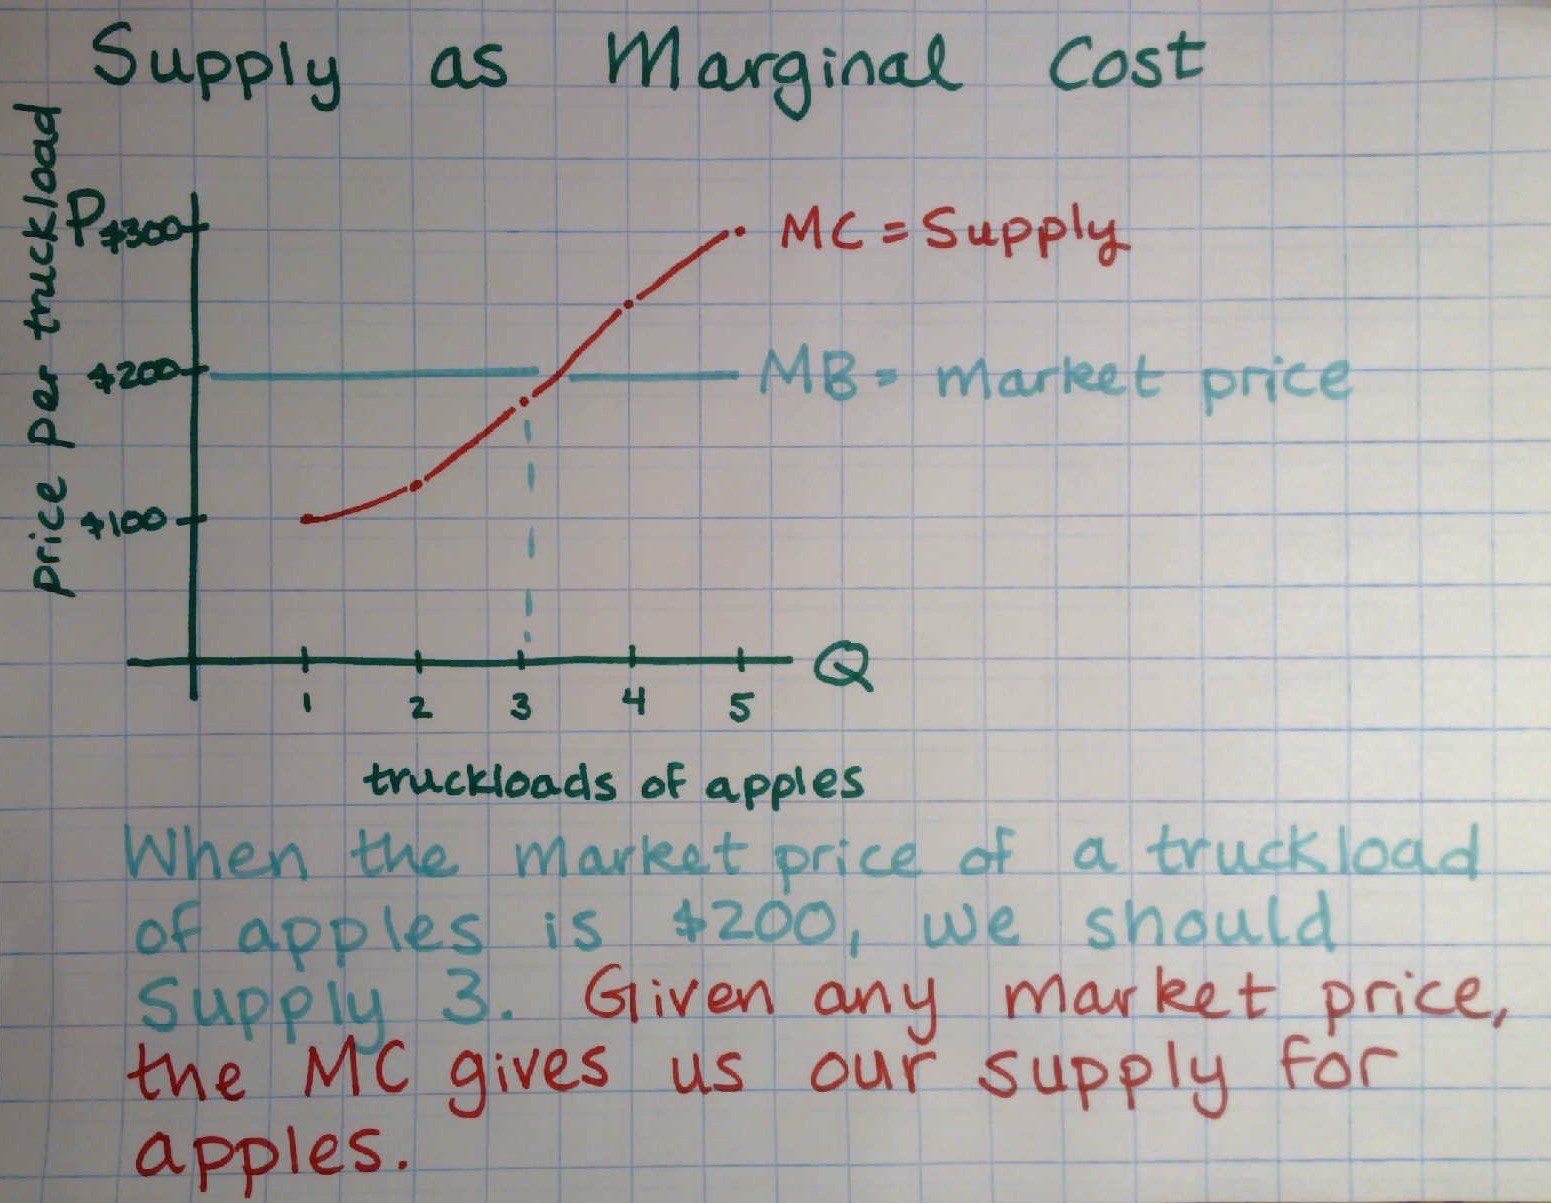 Supply as Marginal Cost
price per truckload
P
$300
MC = Supply
$200
MB = market price
$100
Q
1 2 3 4 5
truckloads of apples
When the market price of a truckload
of apples is $200, we should
supply 3. Given any market price,
the MC gives us our supply for
apples.